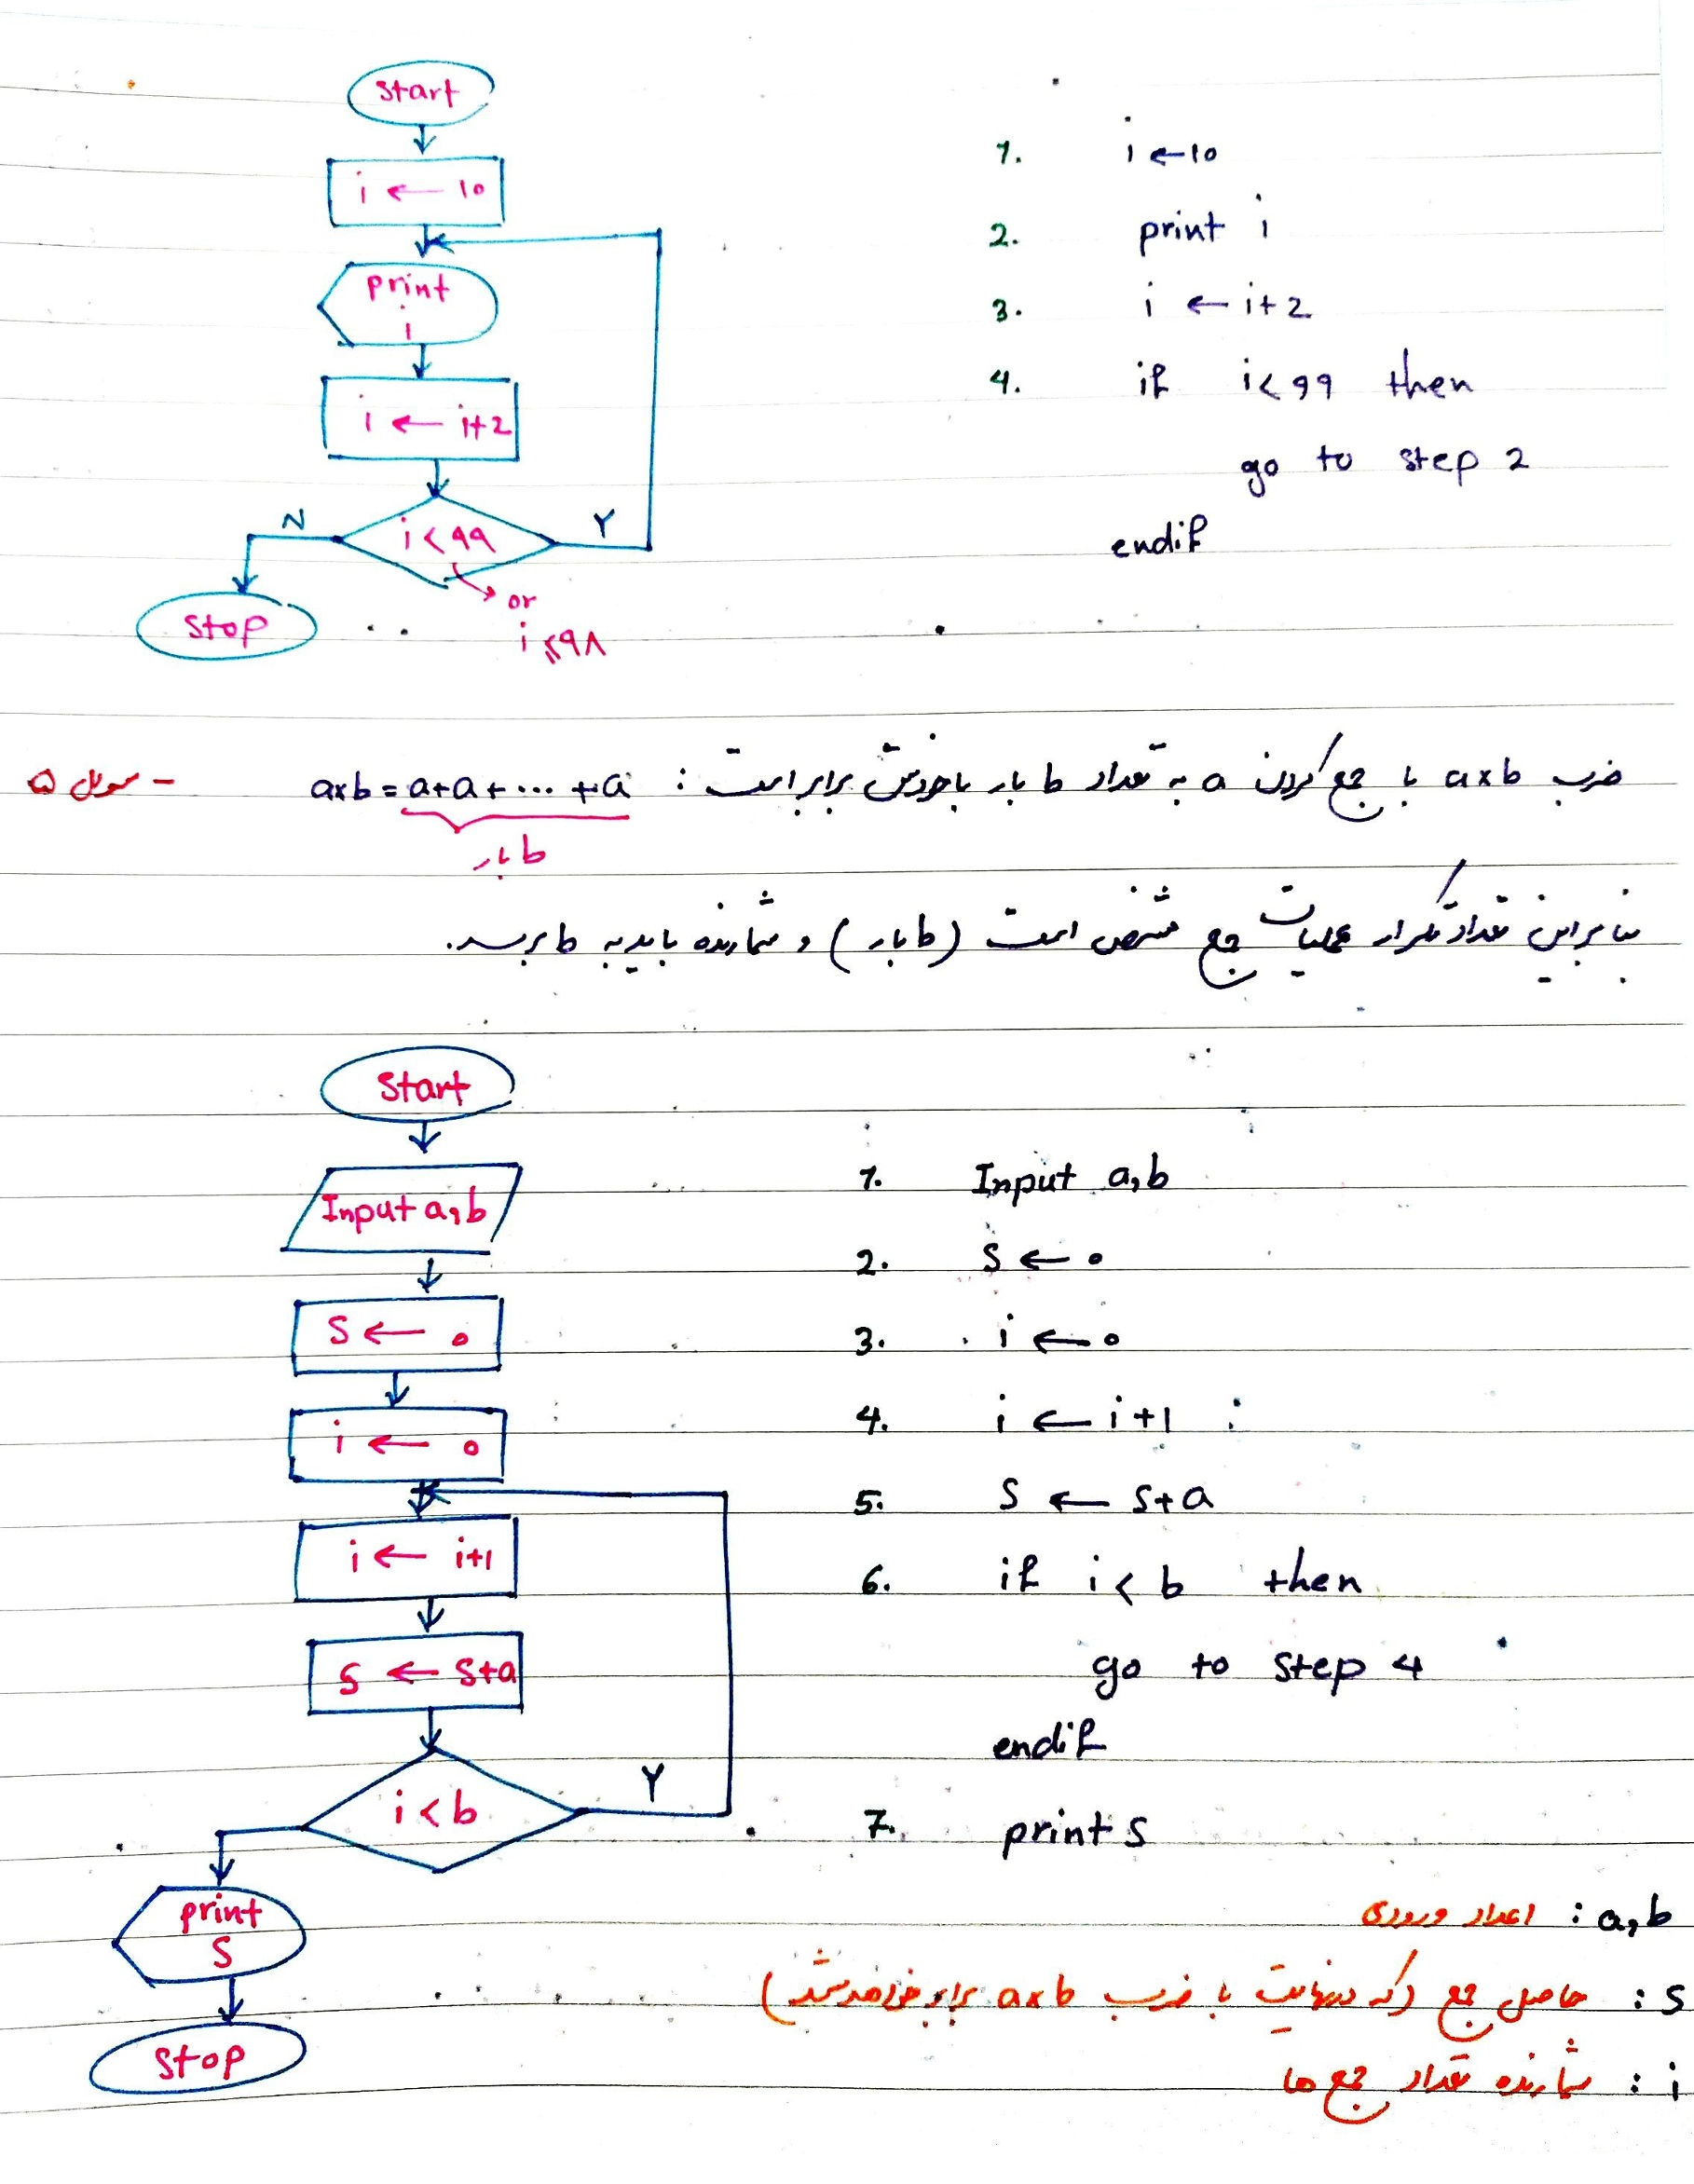 Start
i ← 10
print
i
i ← i+2
i < 99
N
Y
or
i ≤ 98
Stop
1. i ← 10
2. print i
3. i ← i+2
4. if i < 99 then
go to step 2
endif
سوال ۵ -
ضرب a×b با جمع کردن a به تعداد b بار با خودش برابر است : a×b = a+a+ ... +a
b بار
بنابراین تعداد تکرار عملیات جمع مشخص است (b بار) و شمارنده باید به b برسد.
Start
Input a,b
S ← 0
i ← 0
i ← i+1
S ← S+a
i < b
Y
print
S
Stop
1. Input a,b
2. S ← 0
3. i ← 0
4. i ← i+1
5. S ← S+a
6. if i < b then
go to step 4
endif
7. print S
a,b : اعداد ورودی
S : حاصل جمع (که درنهایت با ضرب a×b برابر خواهد شد)
i : شمارنده تعداد جمع ها